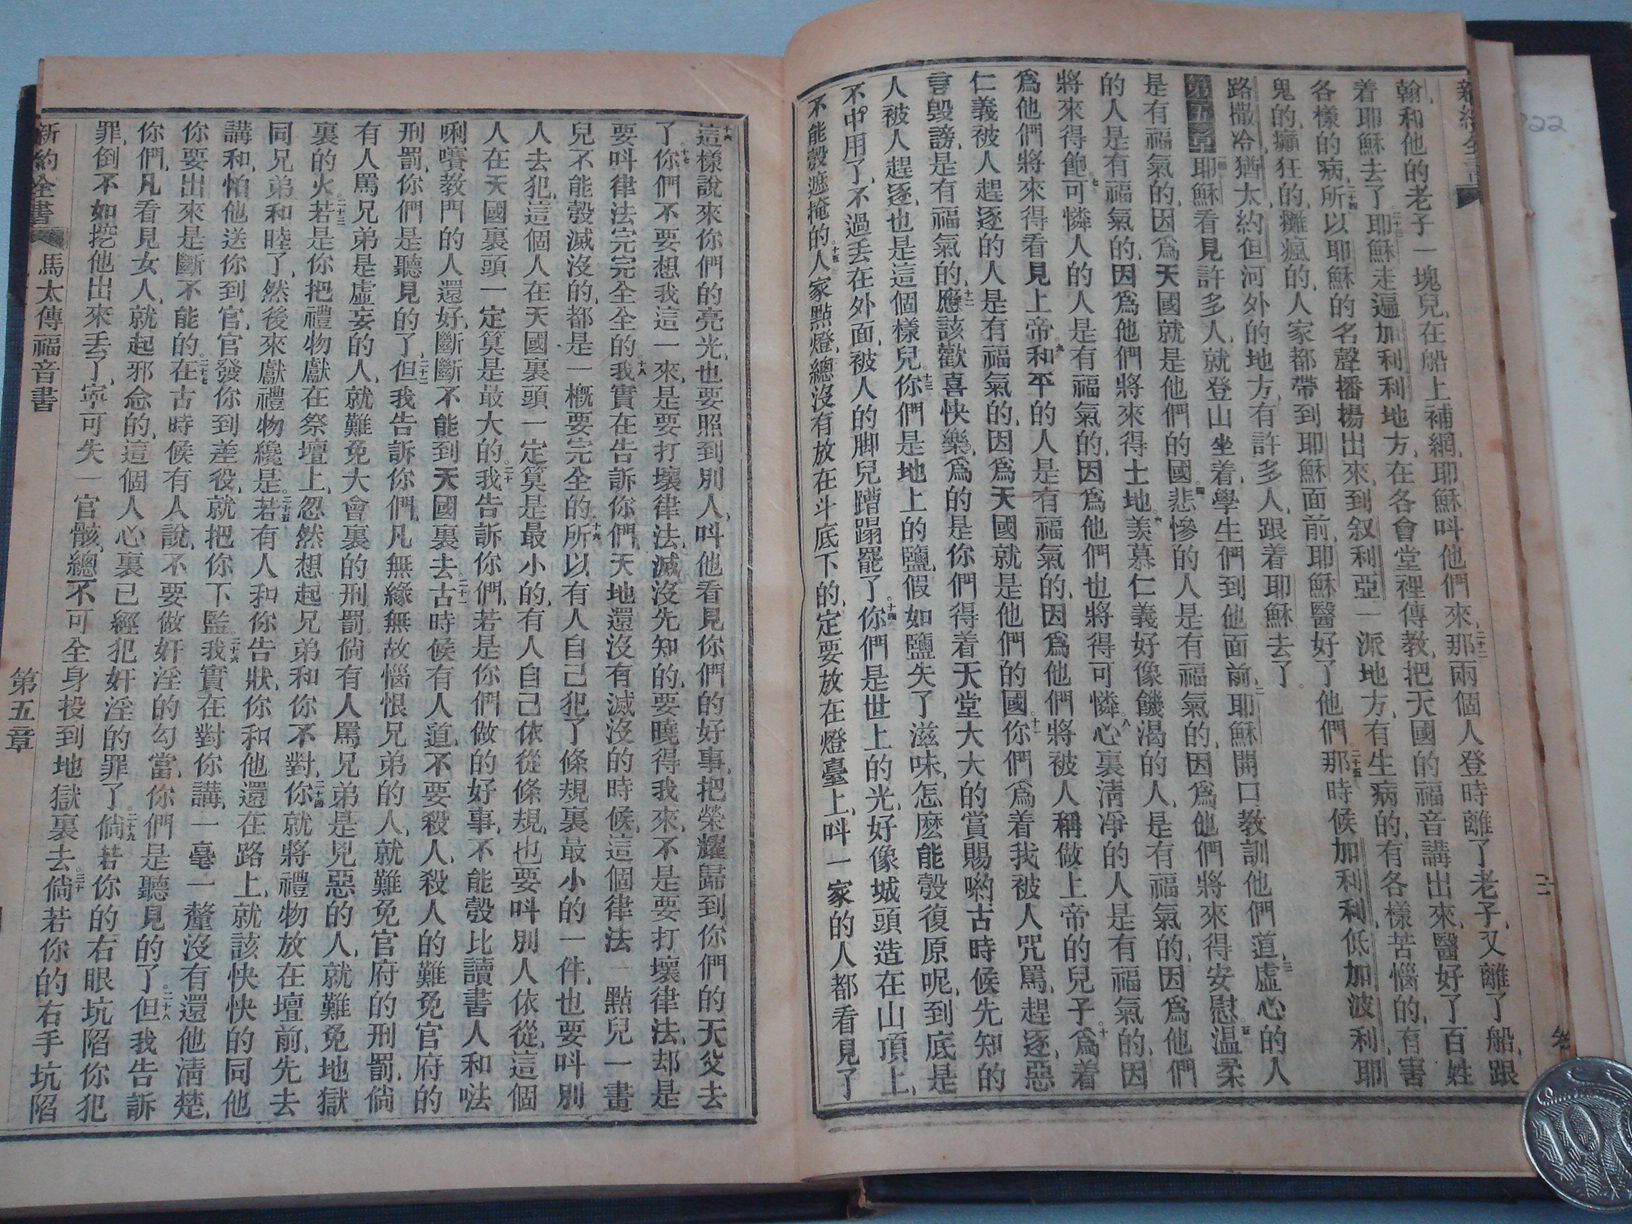 翰和他的老子一塊兒在船上補網耶穌呌他們來二十二那兩個人登時離了老子又離了船跟
着耶穌去了二十三耶穌走遍加利利地方在各會堂裡傳教把天國的福音講出來醫好了百姓
各樣的病二十四所以耶穌的名聲播揚出來到叙利亞一派地方有生病的有各樣苦惱的有害
鬼的癲狂的癱瘋的人家都帶到耶穌面前耶穌醫好了他們二十五那時候加利利低加波利耶
路撒冷猶太約但河外的地方有許多人跟着耶穌去了
第五章一耶穌看見許多人就登山坐着學生們到他面前二耶穌開口教訓他們道三虛心的人
是有福氣的因爲天國就是他們的國四悲慘的人是有福氣的因爲他們將來得安慰五温柔
的人是有福氣的因爲他們將來得土地六羨慕仁義好像饑渴的人是有福氣的因爲他們
將來得飽七可憐人的人是有福氣的因爲他們也將得可憐八心裏淸凈的人是有福氣的因
爲他們將來得看見上帝九和平的人是有福氣的因爲他們將被人稱做上帝的兒子十爲着
仁義被人趕逐的人是有福氣的因爲天國就是他們的國十一你們爲着我被人咒罵趕逐惡
言毀謗是有福氣的十二應該歡喜快樂爲的是你們得着天堂大大的賞賜喲古時候先知的
人被人趕逐也是這個樣兒十三你們是地上的鹽假如鹽失了滋味怎麽能彀復原呢到底是
不中用了不過丢在外面被人的脚兒蹧蹋罷了十四你們是世上的光好像城頭造在山頂上
不能彀遮掩的十五人家點燈總沒有放在斗底下的定要放在燈臺上呌一家的人都看見了
十六這樣說來你們的亮光也要照到別人呌他看見你們的好事把榮耀歸到你們的天父去
了十七你們不要想我這一來是要打壞律法滅沒先知的要曉得我來不是要打壞律法却是
要呌律法完完全全的十八我實在告訴你們天地還沒有滅沒的時候這個律法一點兒一畫
兒不能彀滅沒的都是一概要完全的十九所以有人自己犯了條規裏最小的一件也要呌別
人去犯這個人在天國裏頭一定算是最小的有人自己依從條規也要呌別人依從這個
人在天國裏頭一定算是最大的二十我告訴你們若是你們做的好事不能彀比讀書人和𠵽
唎賽教門的人還好斷斷不能到天國裏去二十一古時候有人道不要殺人殺人的難免官府的
刑罰你們是聽見的了二十二但我告訴你們凡無緣無故惱恨兄弟的人就難免官府的刑罰倘
有人罵兄弟是虛妄的人就難免大會裏的刑罰倘有人罵兄弟是兇惡的人就難免地獄
裏的火二十三若是你把禮物獻在祭壇上忽然想起兄弟和你不對二十四你就將禮物放在壇前先去
同兄弟和睦了然後來獻禮物纔是二十五若有人和你告狀你和他還在路上就該快快的同他
講和怕他送你到官官發你到差役就把你下監二十六我實在對你講一毫一釐沒有還他淸楚
你要出來是斷不能的二十七在古時候有人說不要做奸淫的勾當你們是聽見的了二十八但我告訴
你們凡看見女人就起邪念的這個人心裏已經犯奸淫的罪了二十九倘若你的右眼坑陷你犯
罪倒不如挖他出來丢了寧可失一官骸總不可全身投到地獄裏去三十倘若你的右手坑陷
新約全書
馬太傳福音書
第五章
22